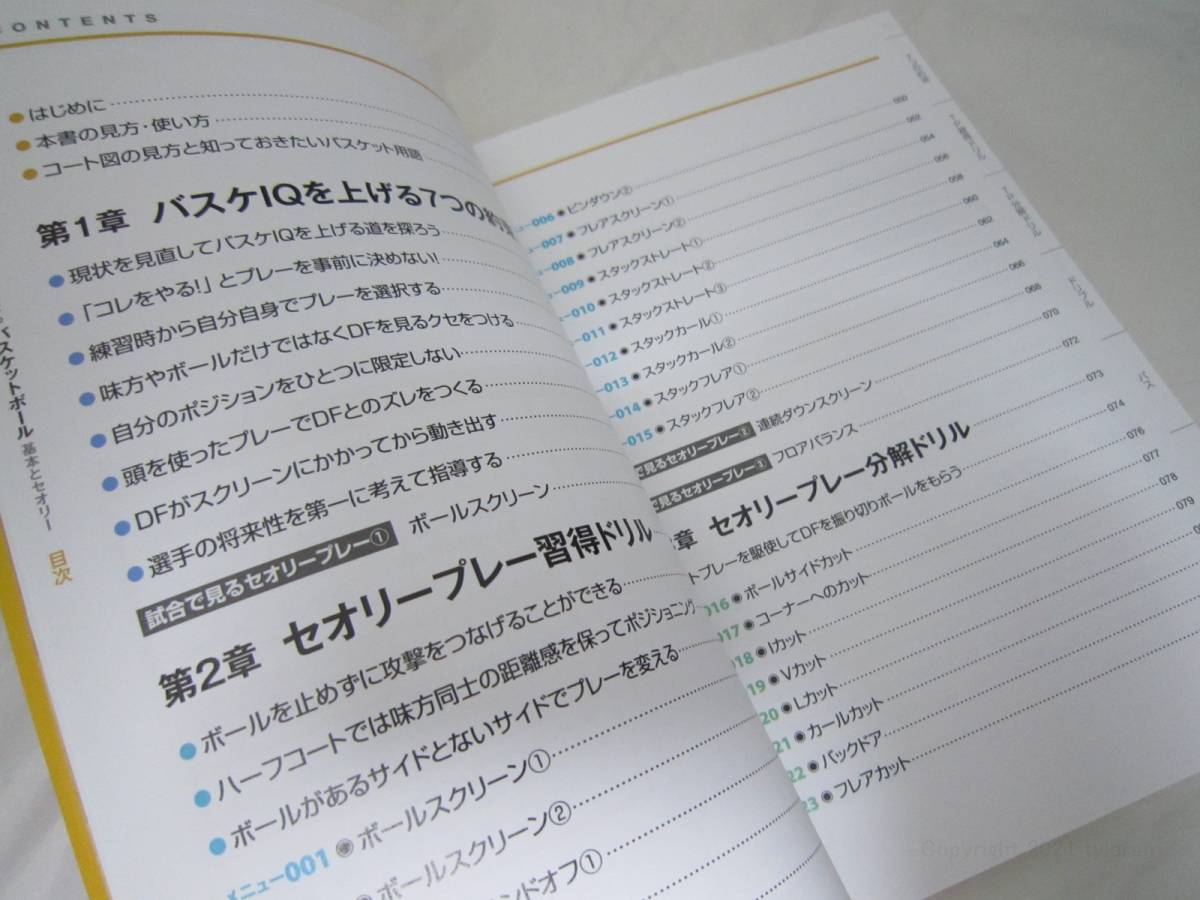 CONTENTS
バスケットボール 基本とセオリー 目次
●はじめに
●本書の見方・使い方
●コート図の見方と知っておきたいバスケット用語
第1章 バスケIQを上げる7つの
●現状を見直してバスケIQを上げる道を探ろう
●「コレをやる!」とプレーを事前に決めない!
●練習時から自分自身でプレーを選択する
●味方やボールだけではなくDFを見るクセをつける
●自分のポジションをひとつに限定しない
●頭を使ったプレーでDFとのズレをつくる
●DFがスクリーンにかかってから動き出す
●選手の将来性を第一に考えて指導する
試合で見るセオリープレー① ボールスクリーン
第2章 セオリープレー習得ドリル
●ボールを止めずに攻撃をつなげることができる
●ハーフコートでは味方同士の距離感を保ってポジショニング
●ボールがあるサイドとないサイドでプレーを変える
メニュー001 ◉ ボールスクリーン①
◉ ボールスクリーン②
ンドオフ①
ュー006 ◉ ピンダウン②
ー007 ◉ フレアスクリーン①
ー008 ◉ フレアスクリーン②
ー009 ◉ スタックストレート①
ー010 ◉ スタックストレート②
ー011 ◉ スタックストレート③
ー012 ◉ スタックカール①
ー013 ◉ スタックカール②
ー014 ◉ スタックフレア①
ー015 ◉ スタックフレア②
で見るセオリープレー② 連続ダウンスクリーン
見るセオリープレー③ フロアバランス
章 セオリープレー分解ドリル
トプレーを駆使してDFを振り切りボールをもらう
016 ◉ ボールサイドカット
017 ◉ コーナーへのカット
018 ◉ Iカット
19 ◉ Vカット
20 ◉ Lカット
21 ◉ カールカット
22 ◉ バックドア
23 ◉ フレアカット
052
054
056
058
060
062
064
066
068
070
072
073
074
076
077
078
079
ドリブル
パス